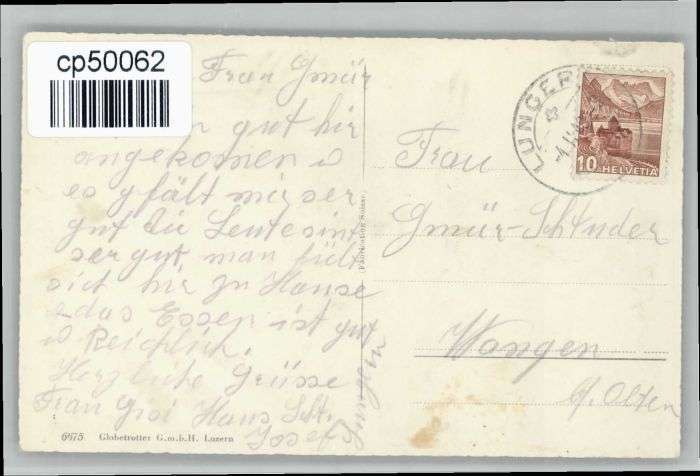 cp50062
Frau Gmür
gut hir
angekomen u
es gfält mir ser
gut die Leute sint
ser gut man fült
sich hir zu Hause
das Essen ist gut
u Reichlich.
Herzliche Grüsse
Frau Hans
Josef
Lungern
6475 Globetrotter G.m.b.H. Luzern
Fabrication Suisse
LUNGER
10 HELVETIA
Frau
Gmür-Schtuder
Wangen
b/ Olten